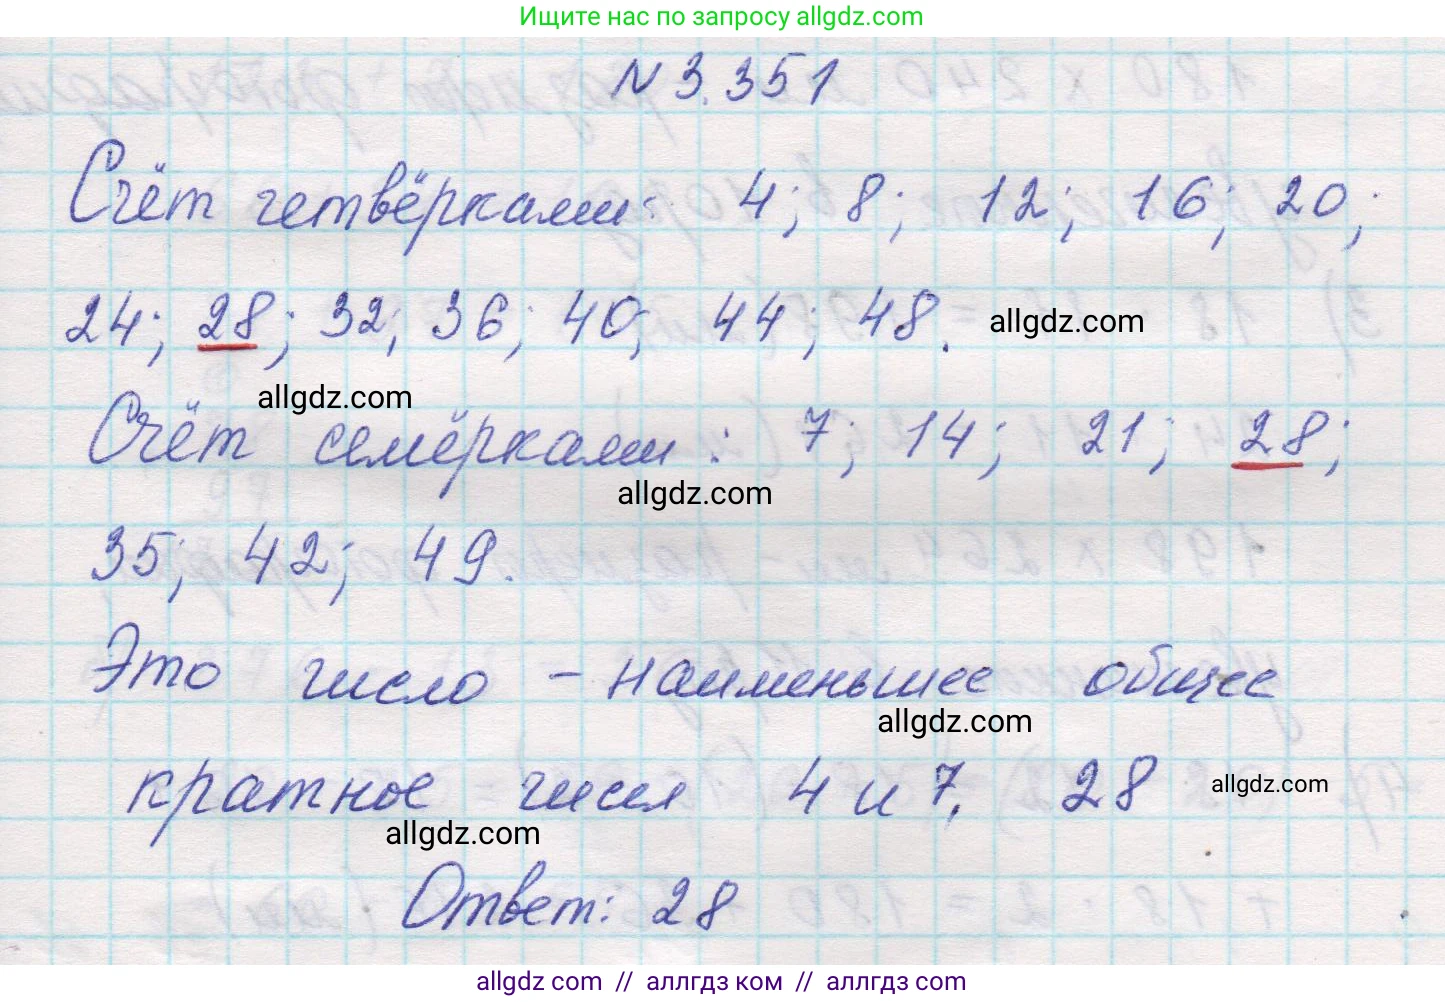 Ищите нас по запросу allgdz.com
N 3.351
Счёт четвёрками: 4; 8; 12; 16; 20;
24; 28; 32; 36; 40; 44; 48.
allgdz.com
allgdz.com
Счёт семёрками: 7; 14; 21; 28;
allgdz.com
35; 42; 49.
Это число – наименьшее общее
allgdz.com
кратное чисел 4 и 7. 28
allgdz.com
allgdz.com
Ответ: 28
allgdz.com // аллгдз ком // аллгдз.com